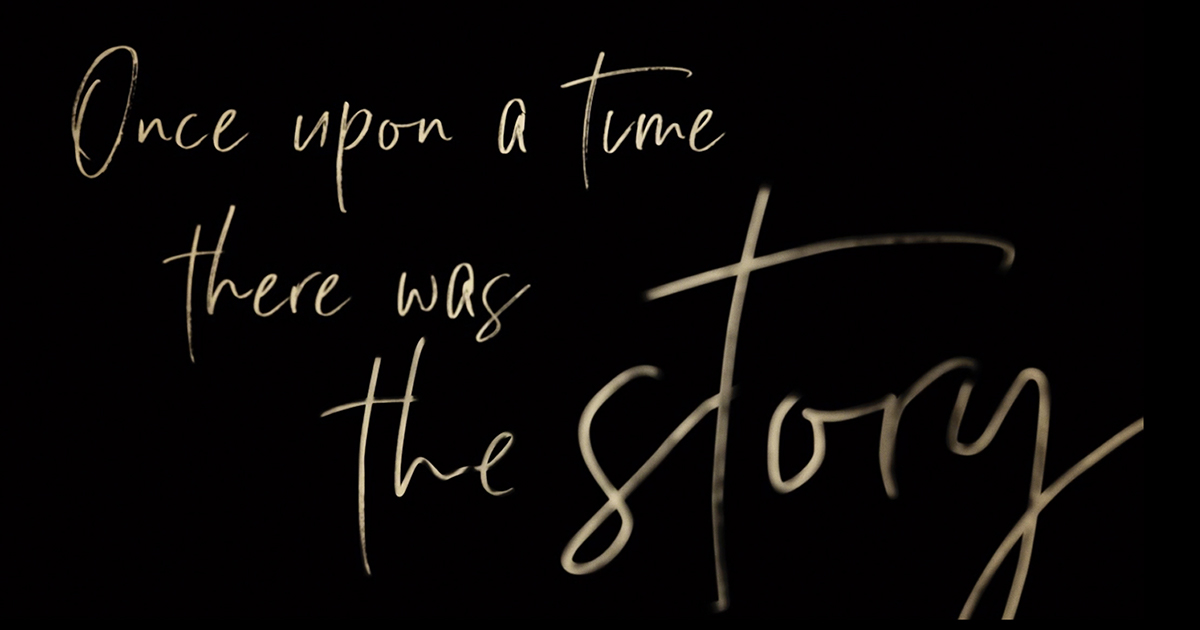 Once upon a time
there was
the story